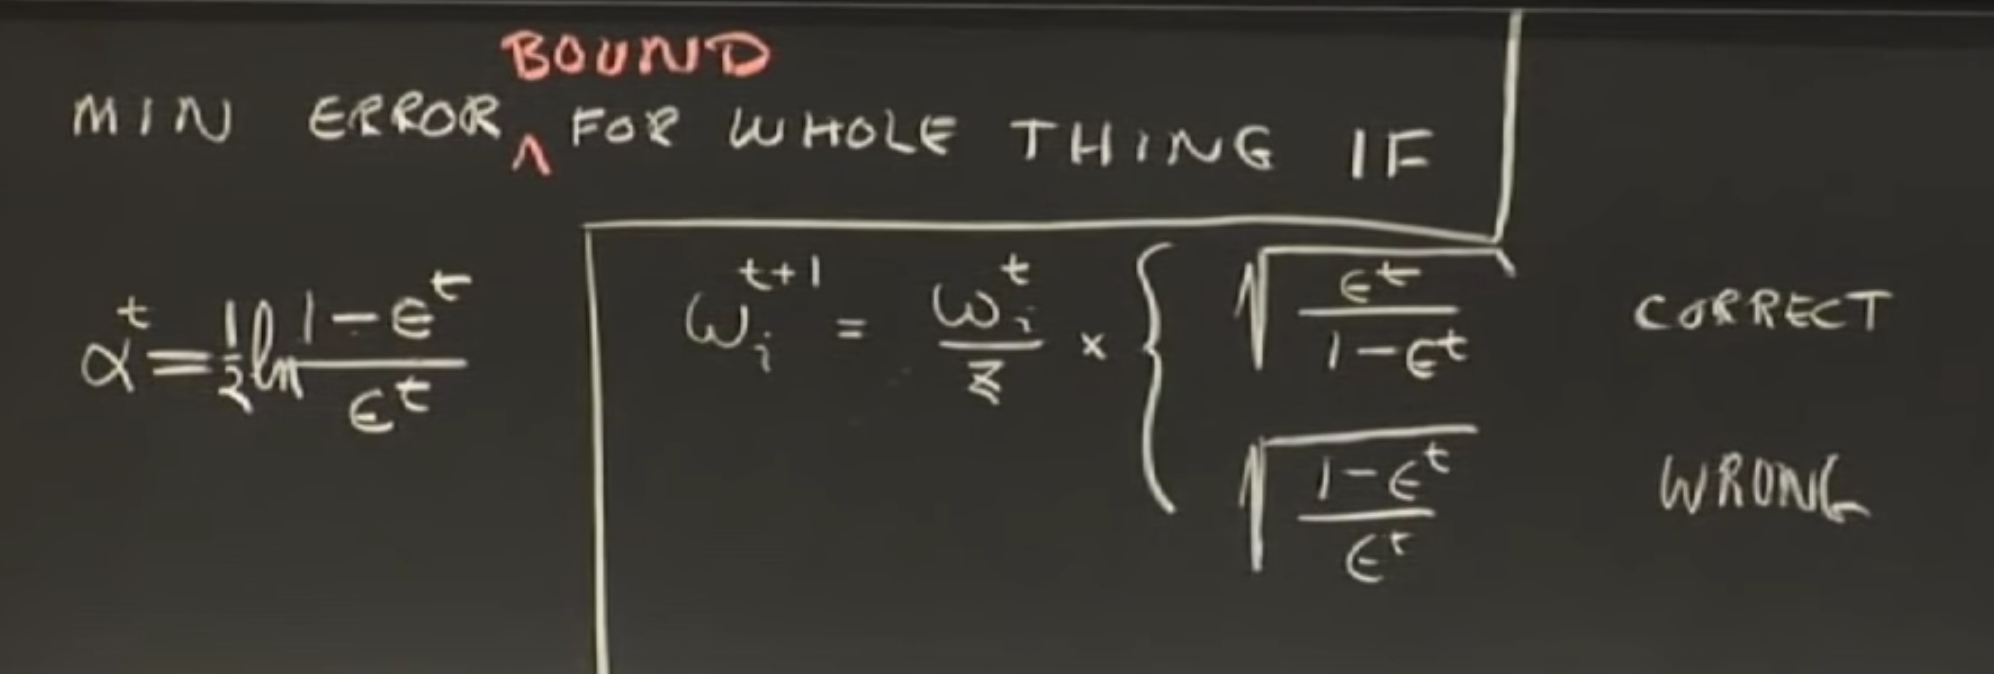 BOUND
MIN ERROR ^ FOR WHOLE THING IF
α^t = 1/2 ln (1-ϵ^t)/(ϵ^t)
ω_i^{t+1} = ω_i^t/z × { √(ϵ^t/(1-ϵ^t)) CORRECT
√((1-ϵ^t)/ϵ^t) WRONG